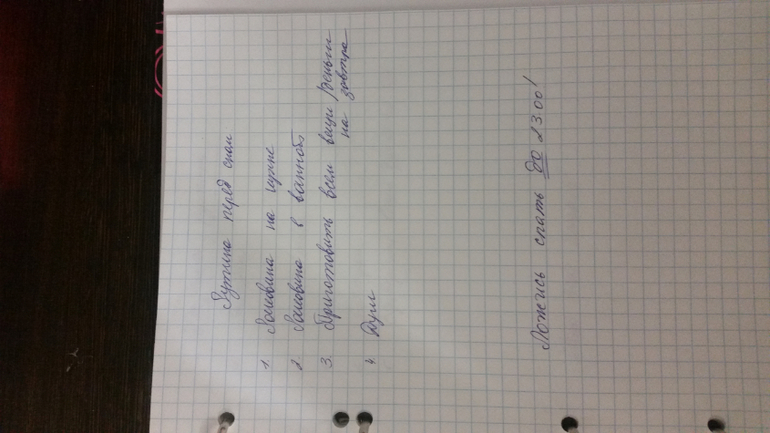 Рутина перед сном
1. Раковина на кухне
2 Раковина в ванной
3. Приготовить всем вещи/деньги
на завтра
4. Душ
Ложись спать до 23.00!